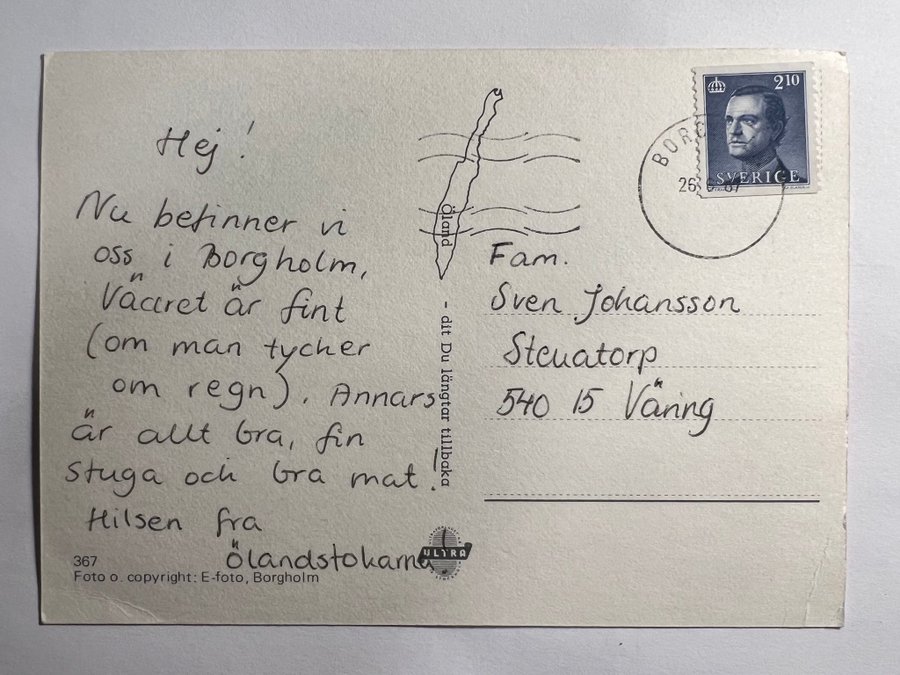 Hej!
Nu befinner vi
oss i Borgholm,
Vädret är fint
(om man tycker
om regn). Annars
är allt bra, fin
stuga och bra mat!
Hilsen fra
Ölandstokarna
367
Foto o. copyright: E-foto, Borgholm
Öland - dit Du längtar tillbaka
ULTRA
2 10
SVERIGE
BORG
26
87
Fam.
Sven Johansson
540 15 Väring